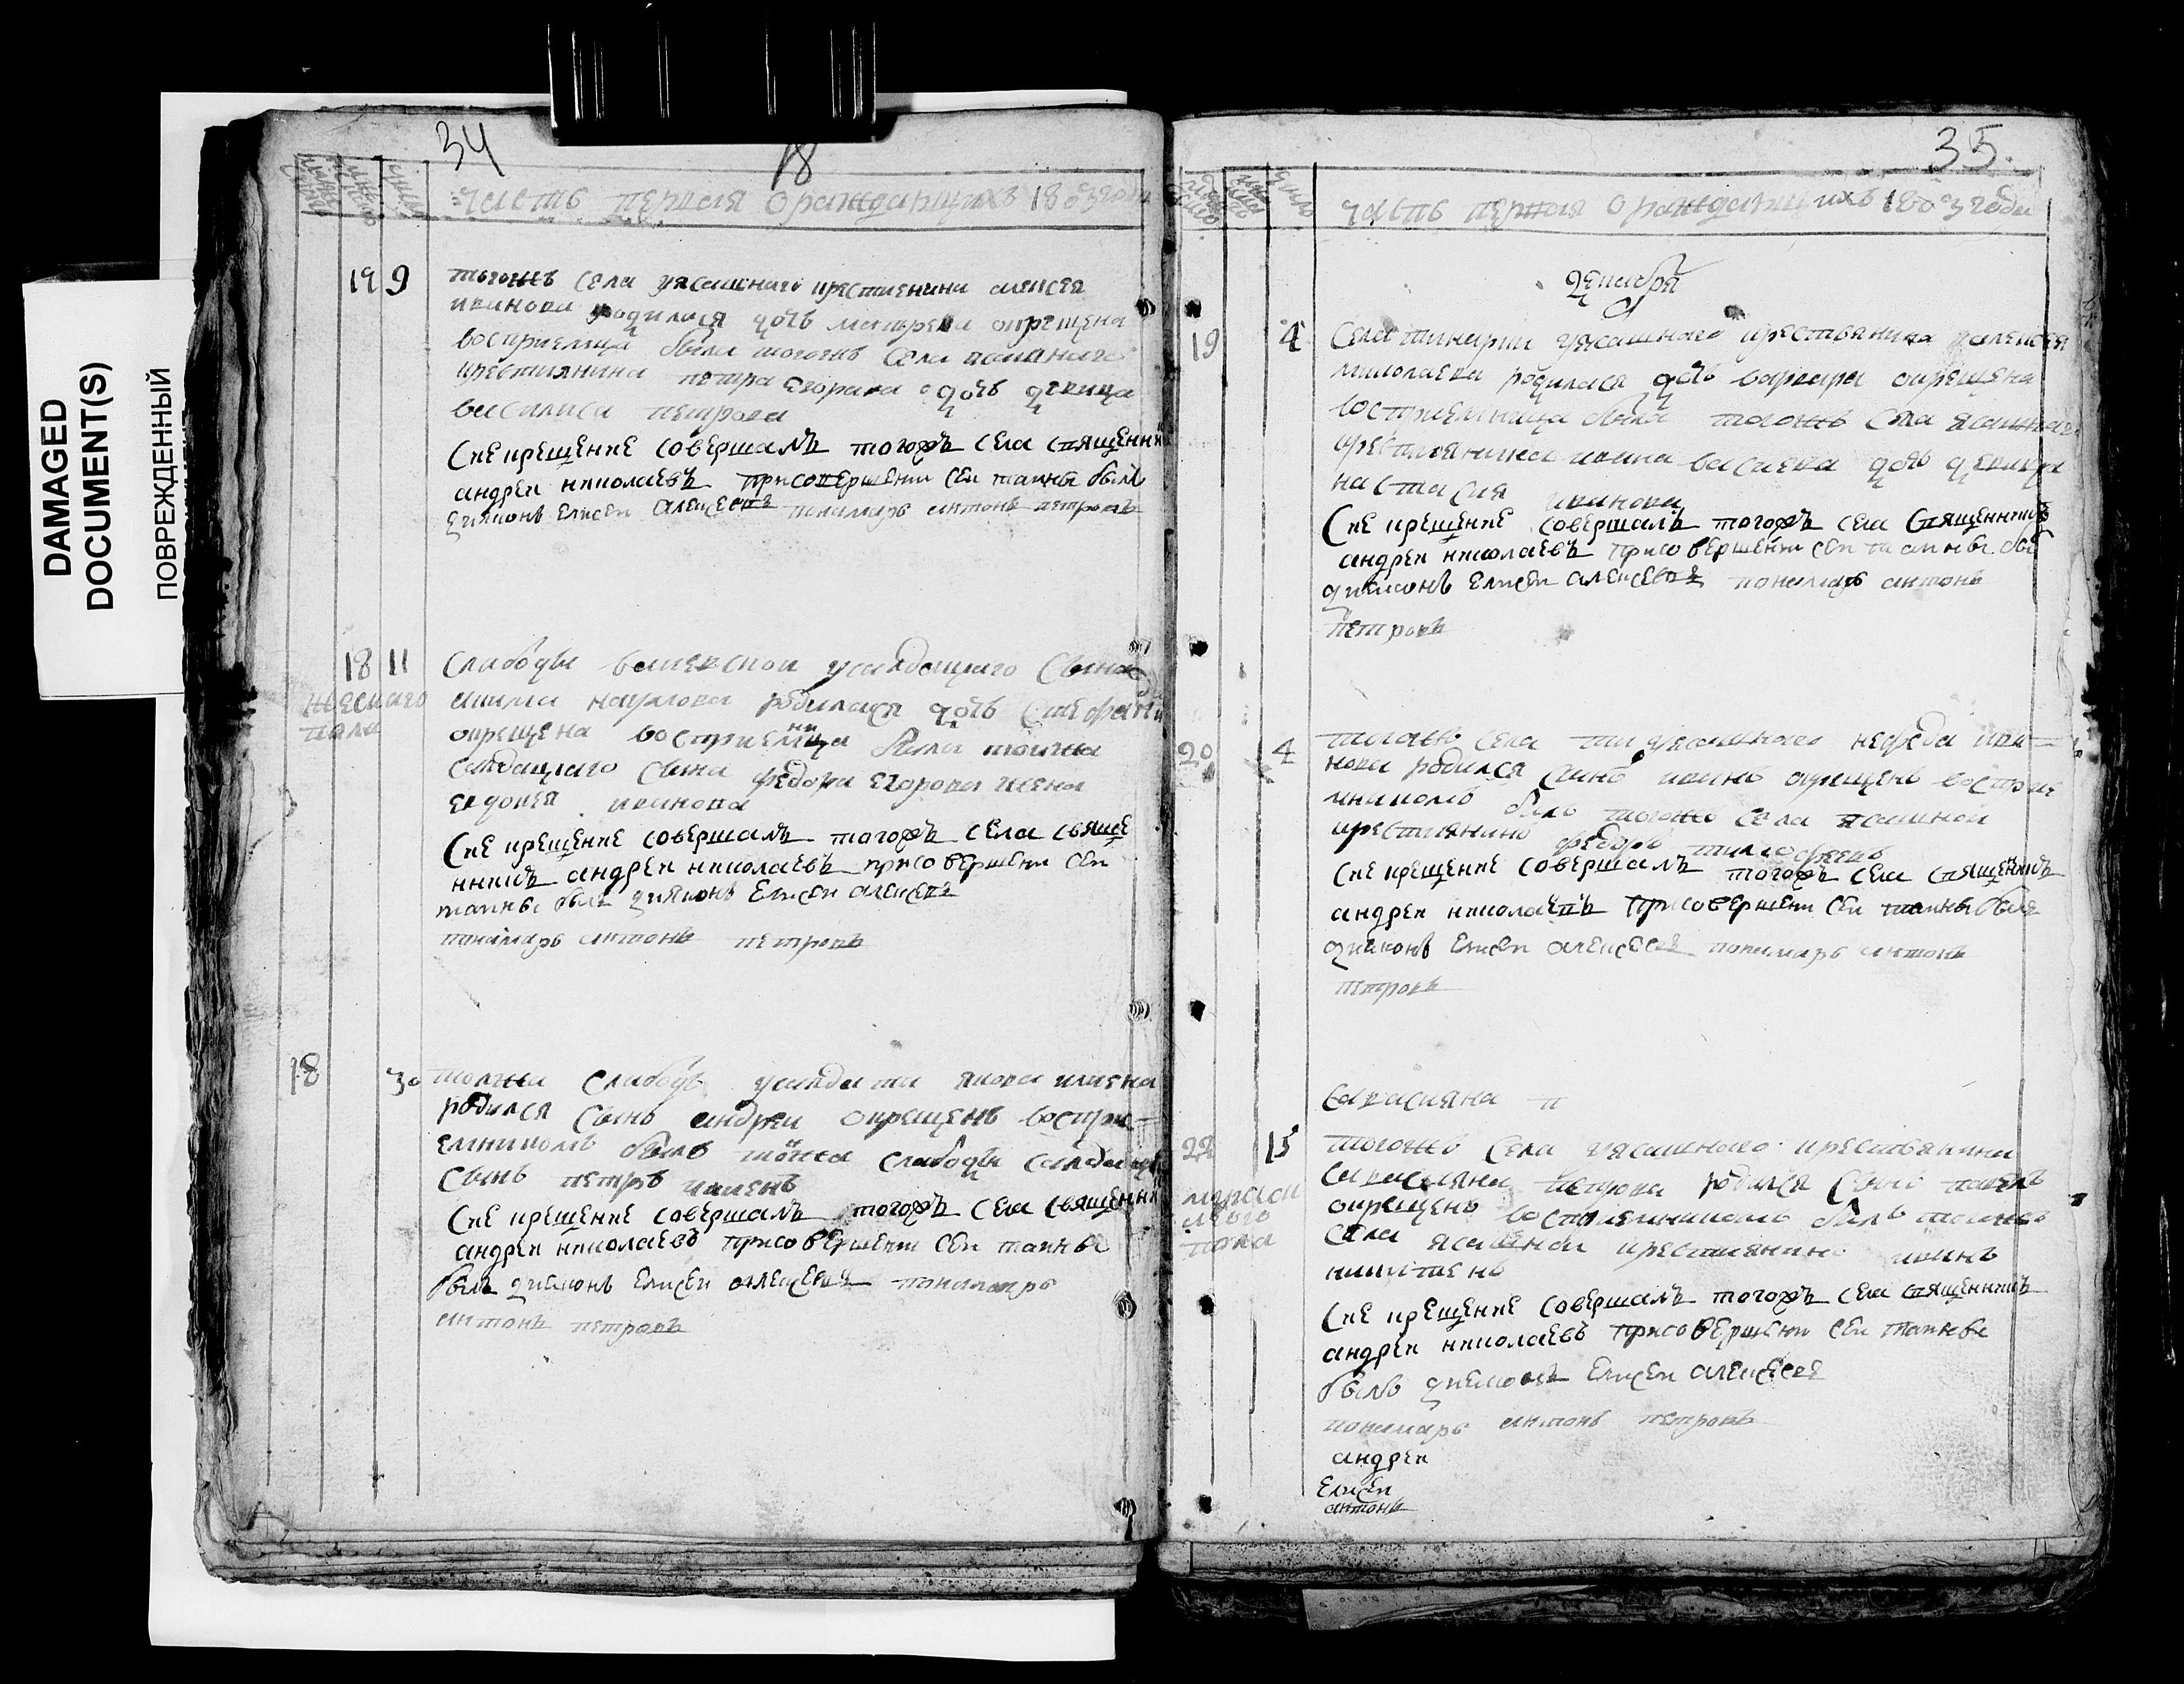 DAMAGED
DOCUMENT(S)
ПОВРЕЖДЕННЫЙ
34
18
часть первая о раждающихъ 1803 года
19 9
тогожъ села уясашнаго крестьенина алексея
иванова родилася дочь матрена окрещена
восприемница была тогожъ села ясашнаго
крестиянина петра егорова дочь девица
василиса петрова
Сие крещение совершалъ тогожъ села священни
андреи николаевъ присовершени сеи таины былъ
дияконъ Елисеи алексеевъ понамарь антонъ петровъ
18 11
Слабоды салдацкаго сына
женскаго
пола
акима наумова родилася дочь
окрещена восприемница была тоижъ
салдацкаго сына федора егорова жена
евдокея иванова
Сие крещение совершалъ тогожъ села свяще
нникъ андреи николаевъ присовершени сеи
таины былъ дияконъ Елисеи алексевъ
понамарь антонъ петровъ
18 30
тоижа слабоды усалдата якова
родился сынъ андреи окрещенъ воспри
емникомъ былъ тоижа слабоды салдацк
сынъ петръ
Сие крещение совершалъ тогожъ села священни
андреи николаевъ присовершени сеи таины
былъ дияконъ Елисеи алексевъ понамарь
антонъ петровъ
35.
число
часть первая о раждающихъ 1803 года
декабря
19 4
Села уясашнаго крестьянина алексея
миколаева родилася дочь варвара окрещена
восприемница была тогожъ села ясашнаго
крестиянина ивана васиева дочь девица
настасия иванова
Сие крещение совершалъ тогожъ села священникъ
андреи николаевъ присовершени сеи таины бы
диаконъ Елисеи алексеевъ понамарь антонъ
петровъ
20 4
тогожъ села уясашнаго нефеда ива
нова родился сынъ иванъ окрещенъ восприе
мникомъ былъ тогожъ села ясашнои
крестиянинъ федоръ тимофеевъ
Сие крещение совершалъ тогожъ села священникъ
андреи николаевъ присовершени сеи таины былъ
диаконъ Елисеи алексеевъ понамарь антонъ
петровъ
савасияна п
22 15
тогожъ села уясашнаго крестьянина
савасияна петрова родился сынъ павелъ
окрещенъ восприемникомъ былъ тогожъ
села ясашнои крестиянинъ иванъ
никитенъ
пола
Сие крещение совершалъ тогожъ села священникъ
андреи николаевъ присовершени сеи таины
былъ диаконъ Елисеи алексеевъ
понамарь антонъ петровъ
андреи
Елисеи
антонъ